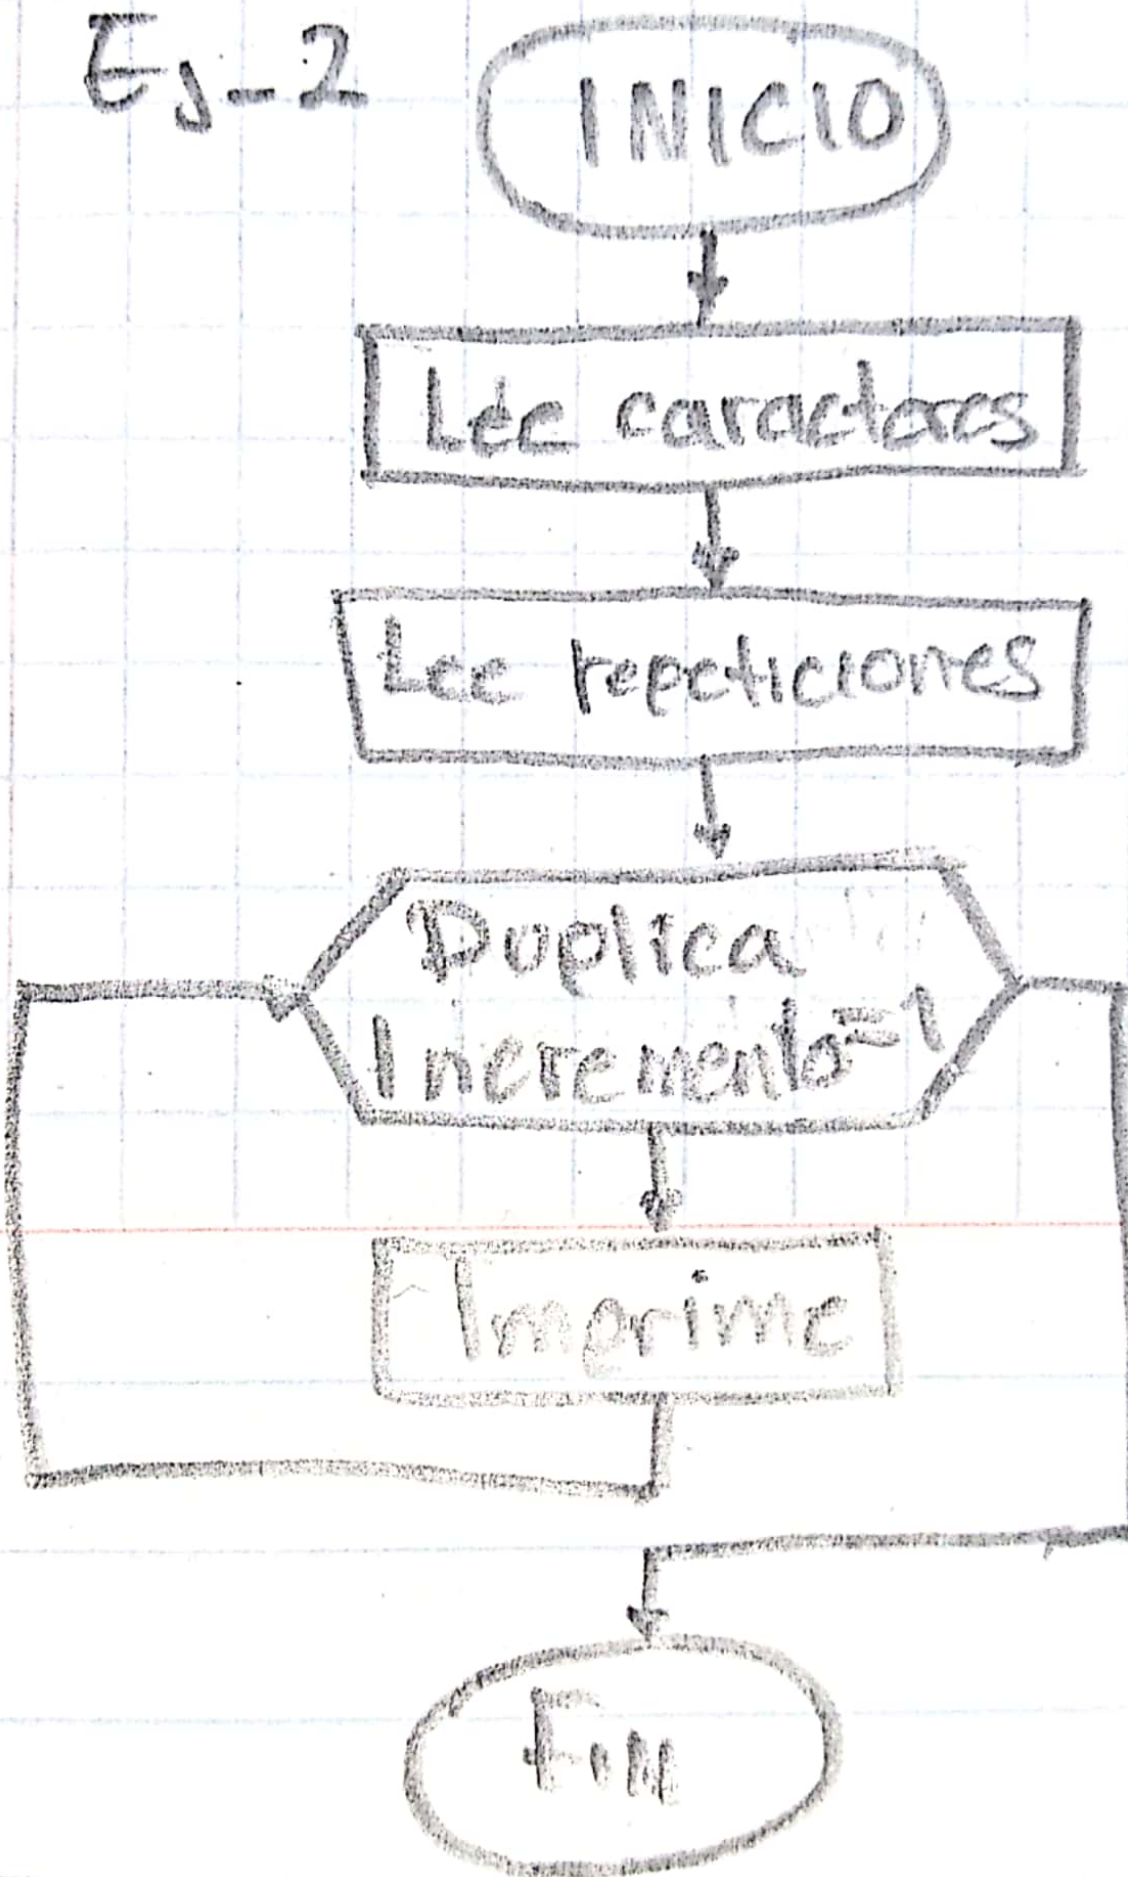 Ej-2
INICIO
Lee caracteres
Lee repeticiones
Duplica
Incremento=1
Imprime
Fin